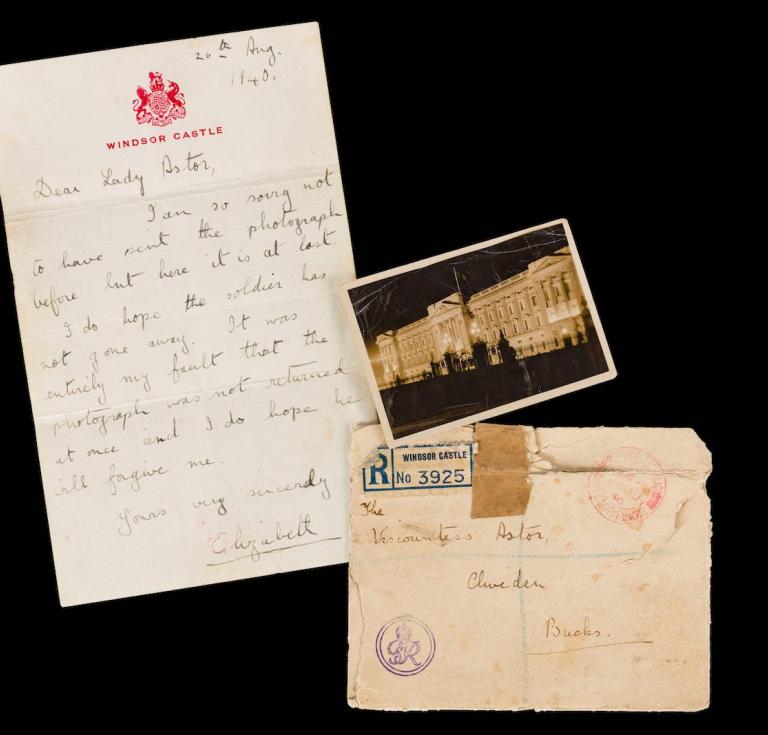 26th Aug.
1940.
WINDSOR CASTLE
Dear Lady Astor,
I am so sorry not
to have sent the photograph
before but here it is at last.
I do hope the soldier has
not gone away. It was
entirely my fault that the
photograph was not returned
at once and I do hope he
will forgive me.
Yours very sincerely
Elizabeth
R
WINDSOR CASTLE
No 3925
The
Viscountess Astor,
Cliveden
Bucks.
GR